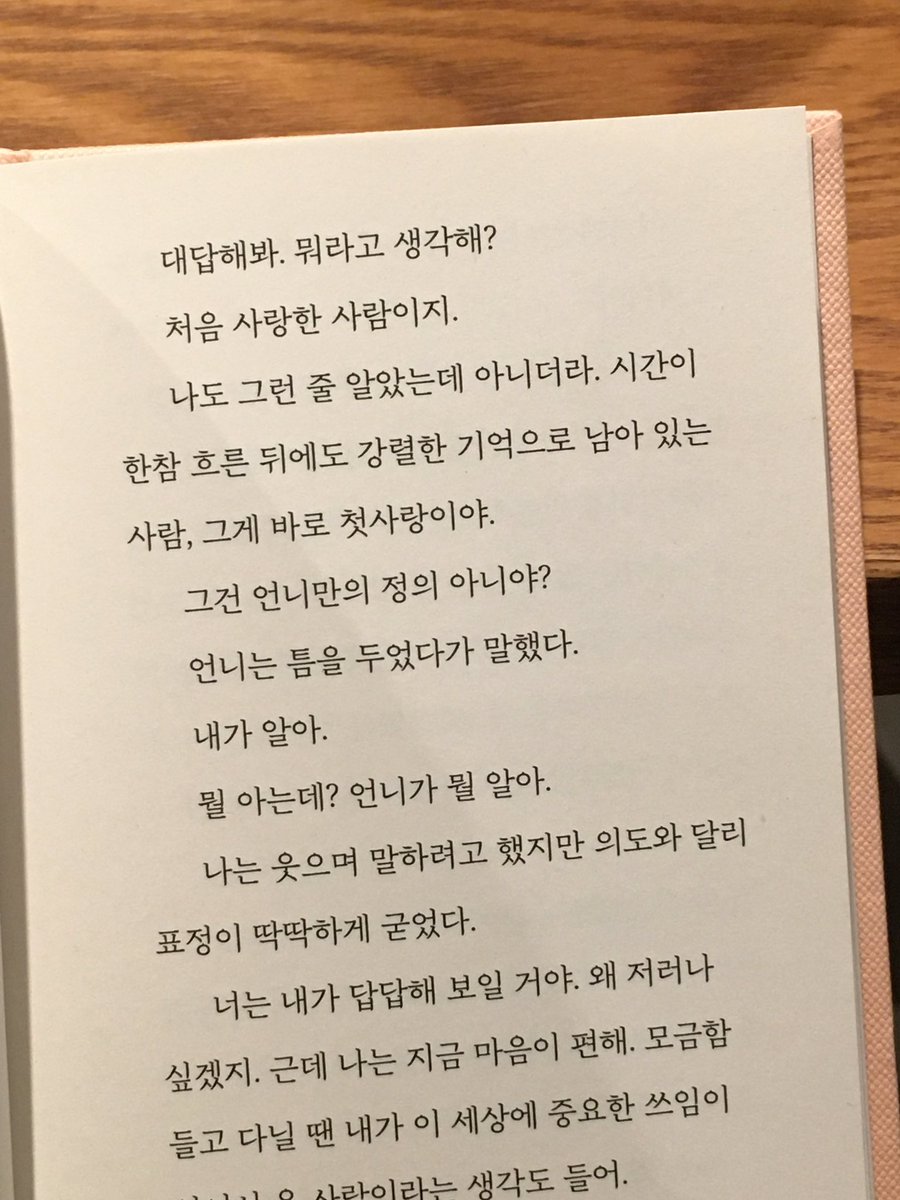 대답해봐. 뭐라고 생각해?
처음 사랑한 사람이지.
나도 그런 줄 알았는데 아니더라. 시간이
한참 흐른 뒤에도 강렬한 기억으로 남아 있는
사람, 그게 바로 첫사랑이야.
그건 언니만의 정의 아니야?
언니는 틈을 두었다가 말했다.
내가 알아.
뭘 아는데? 언니가 뭘 알아.
나는 웃으며 말하려고 했지만 의도와 달리
표정이 딱딱하게 굳었다.
너는 내가 답답해 보일 거야. 왜 저러나
싶겠지. 근데 나는 지금 마음이 편해. 모금함
들고 다닐 땐 내가 이 세상에 중요한 쓰임이
사람이라는 생각도 들어.